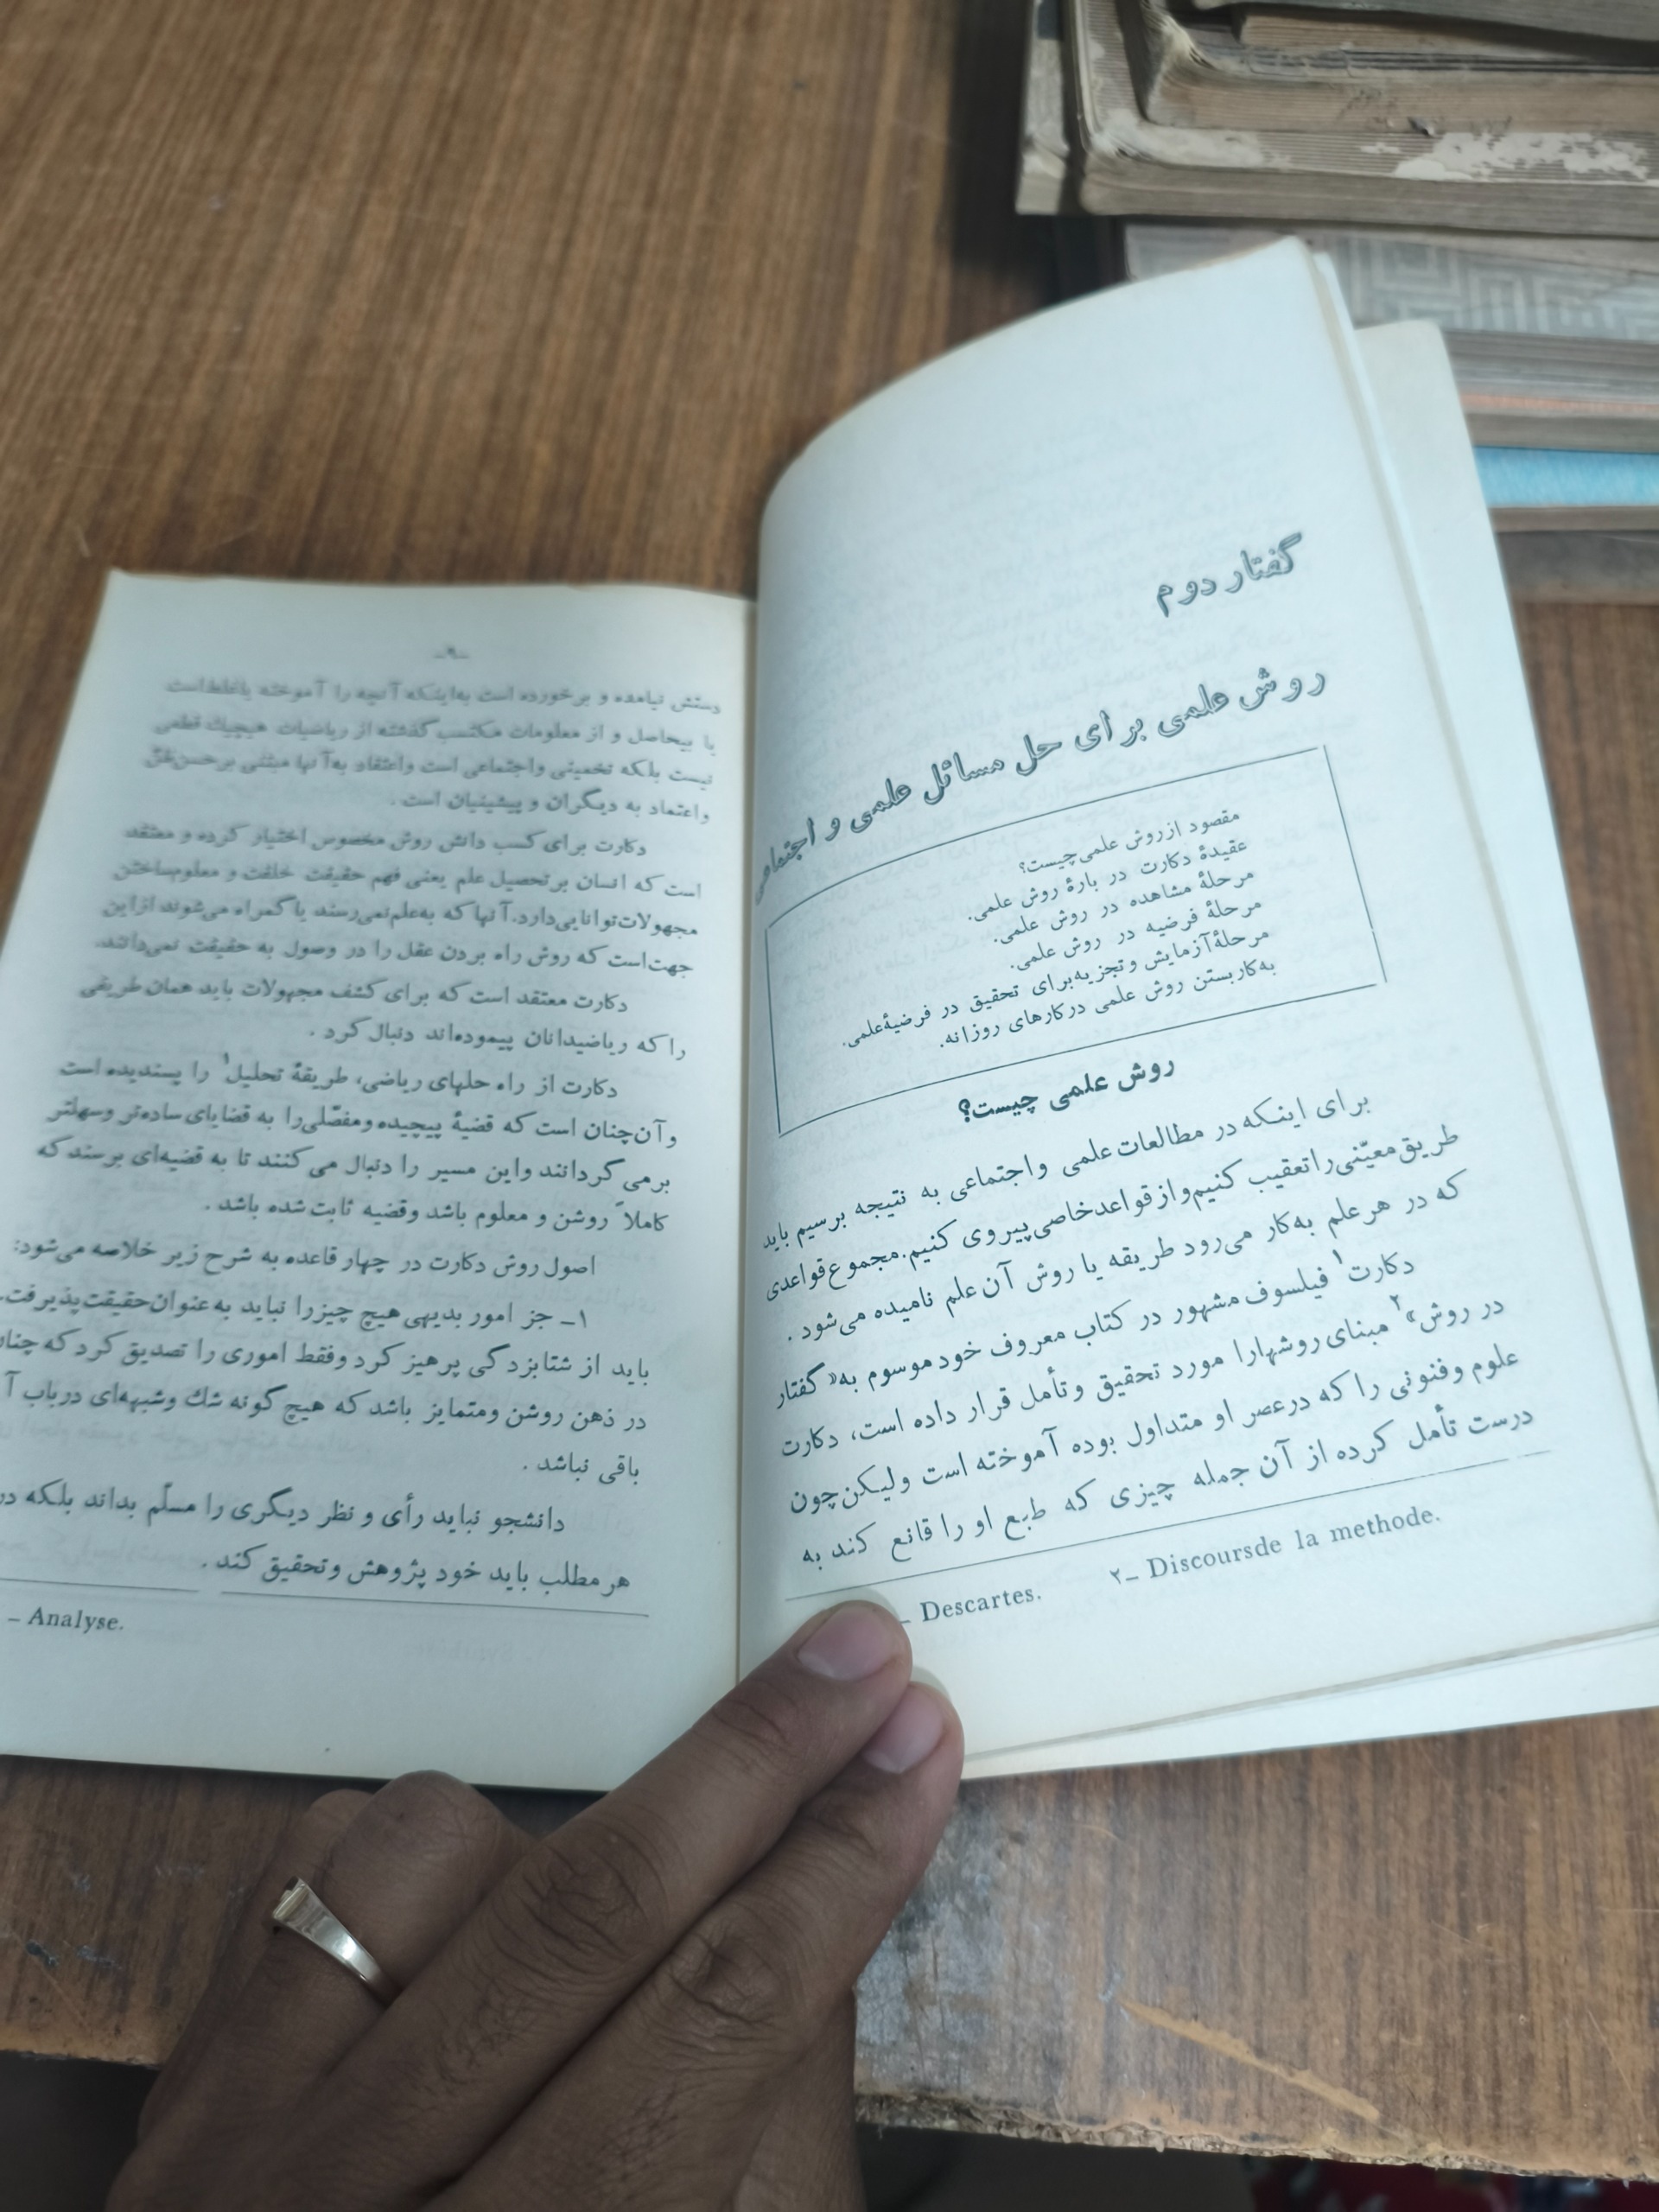 گفتار دوم
روش علمی برای حل مسائل علمی و اجتماعی
مقصود ازروش علمی‌چیست؟
عقیدهٔ دکارت در بارهٔ روش علمی.
مرحلهٔ مشاهده در روش علمی.
مرحلهٔ فرضیه در روش علمی.
مرحلهٔ آزمایش و تجزیه‌برای تحقیق در فرضیهٔ‌علمی.
به‌کاربستن روش علمی درکارهای روزانه.
روش علمی چیست؟
برای اینکه در مطالعات علمی واجتماعی به نتیجه برسیم باید
طریق‌معیّنی‌راتعقیب کنیم‌وازقواعدخاصی‌پیروی کنیم.مجموع‌قواعدی
که در هرعلم به‌کار می‌رود طریقه یا روش آن‌علم نامیده می‌شود .
دکارت۱ فیلسوف مشهور در کتاب معروف خود موسوم به« گفتار
در روش»۲ مبنای‌روشهارا مورد تحقیق وتأمل قرار داده است، دکارت
علوم وفنونی را که درعصر او متداول بوده آموخته است ولیکن‌چون
درست تأمل کرده از آن جمله چیزی که طبع او را قانع کند به
ـ Descartes.
۲ـ Discoursde la methode.
ـ۹ـ
دستش نیامده و برخورده است به‌اینکه آنچه را آموخته یاغلط‌است
یا بیحاصل و از معلومات مکتسب گذشته از ریاضیات هیچیك قطعی
نیست بلکه تخمینی واجتماعی است واعتقاد به‌آنها مبتنی برحسن‌ظنّ
واعتماد به دیگران و پیشینیان است .
دکارت برای کسب دانش روش مخصوص اختیار کرده و معتقد
است که انسان برتحصیل علم یعنی فهم حقیقت خلقت و معلوم‌ساختن
مجهولات‌توانایی‌دارد.آنها که به‌علم‌نمی‌رسند یاگمراه می‌شوند ازاین
جهت‌است که روش راه بردن عقل را در وصول به حقیقت نمی‌دانند.
دکارت معتقد است که برای کشف مجهولات باید همان طریقی
را که ریاضیدانان پیموده‌اند دنبال کرد .
دکارت از راه حلهای ریاضی، طریقهٔ تحلیل۱ را پسندیده است
وآن‌چنان است که قضیهٔ پیچیده ومفصّلی‌را به قضایای ساده‌تر وسهلتر
برمی گردانند واین مسیر را دنبال می کنند تا به قضیه‌ای برسند که
کاملاً روشن و معلوم باشد وقضیه ثابت شده باشد .
اصول روش دکارت در چهار قاعده به شرح زیر خلاصه می‌شود:
۱ـ جز امور بدیهی هیچ چیزرا نباید به‌عنوان‌حقیقت‌پذیرفت.
باید از شتابزدگی پرهیز کرد وفقط اموری را تصدیق کرد که
در ذهن روشن ومتمایز باشد که هیچ گونه شك وشبهه‌ای درباب
باقی نباشد .
دانشجو نباید رأی و نظر دیگری را مسلّم بداند بلکه در
هر مطلب باید خود پژوهش وتحقیق کند .
ـ Analyse.